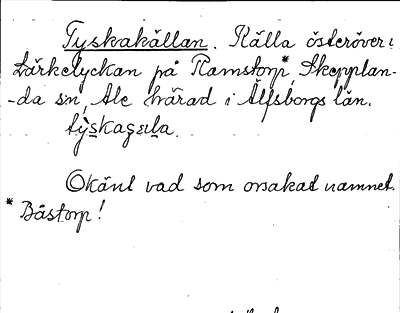 Tyskakällan. Källa österöver i
Lärkelyckan på Ramstorp*, Skepplan-
-da sn, Ale härad i Älfsborgs län.
týskaçula.
Okänt vad som orsakat namnet.
* Båstorp!